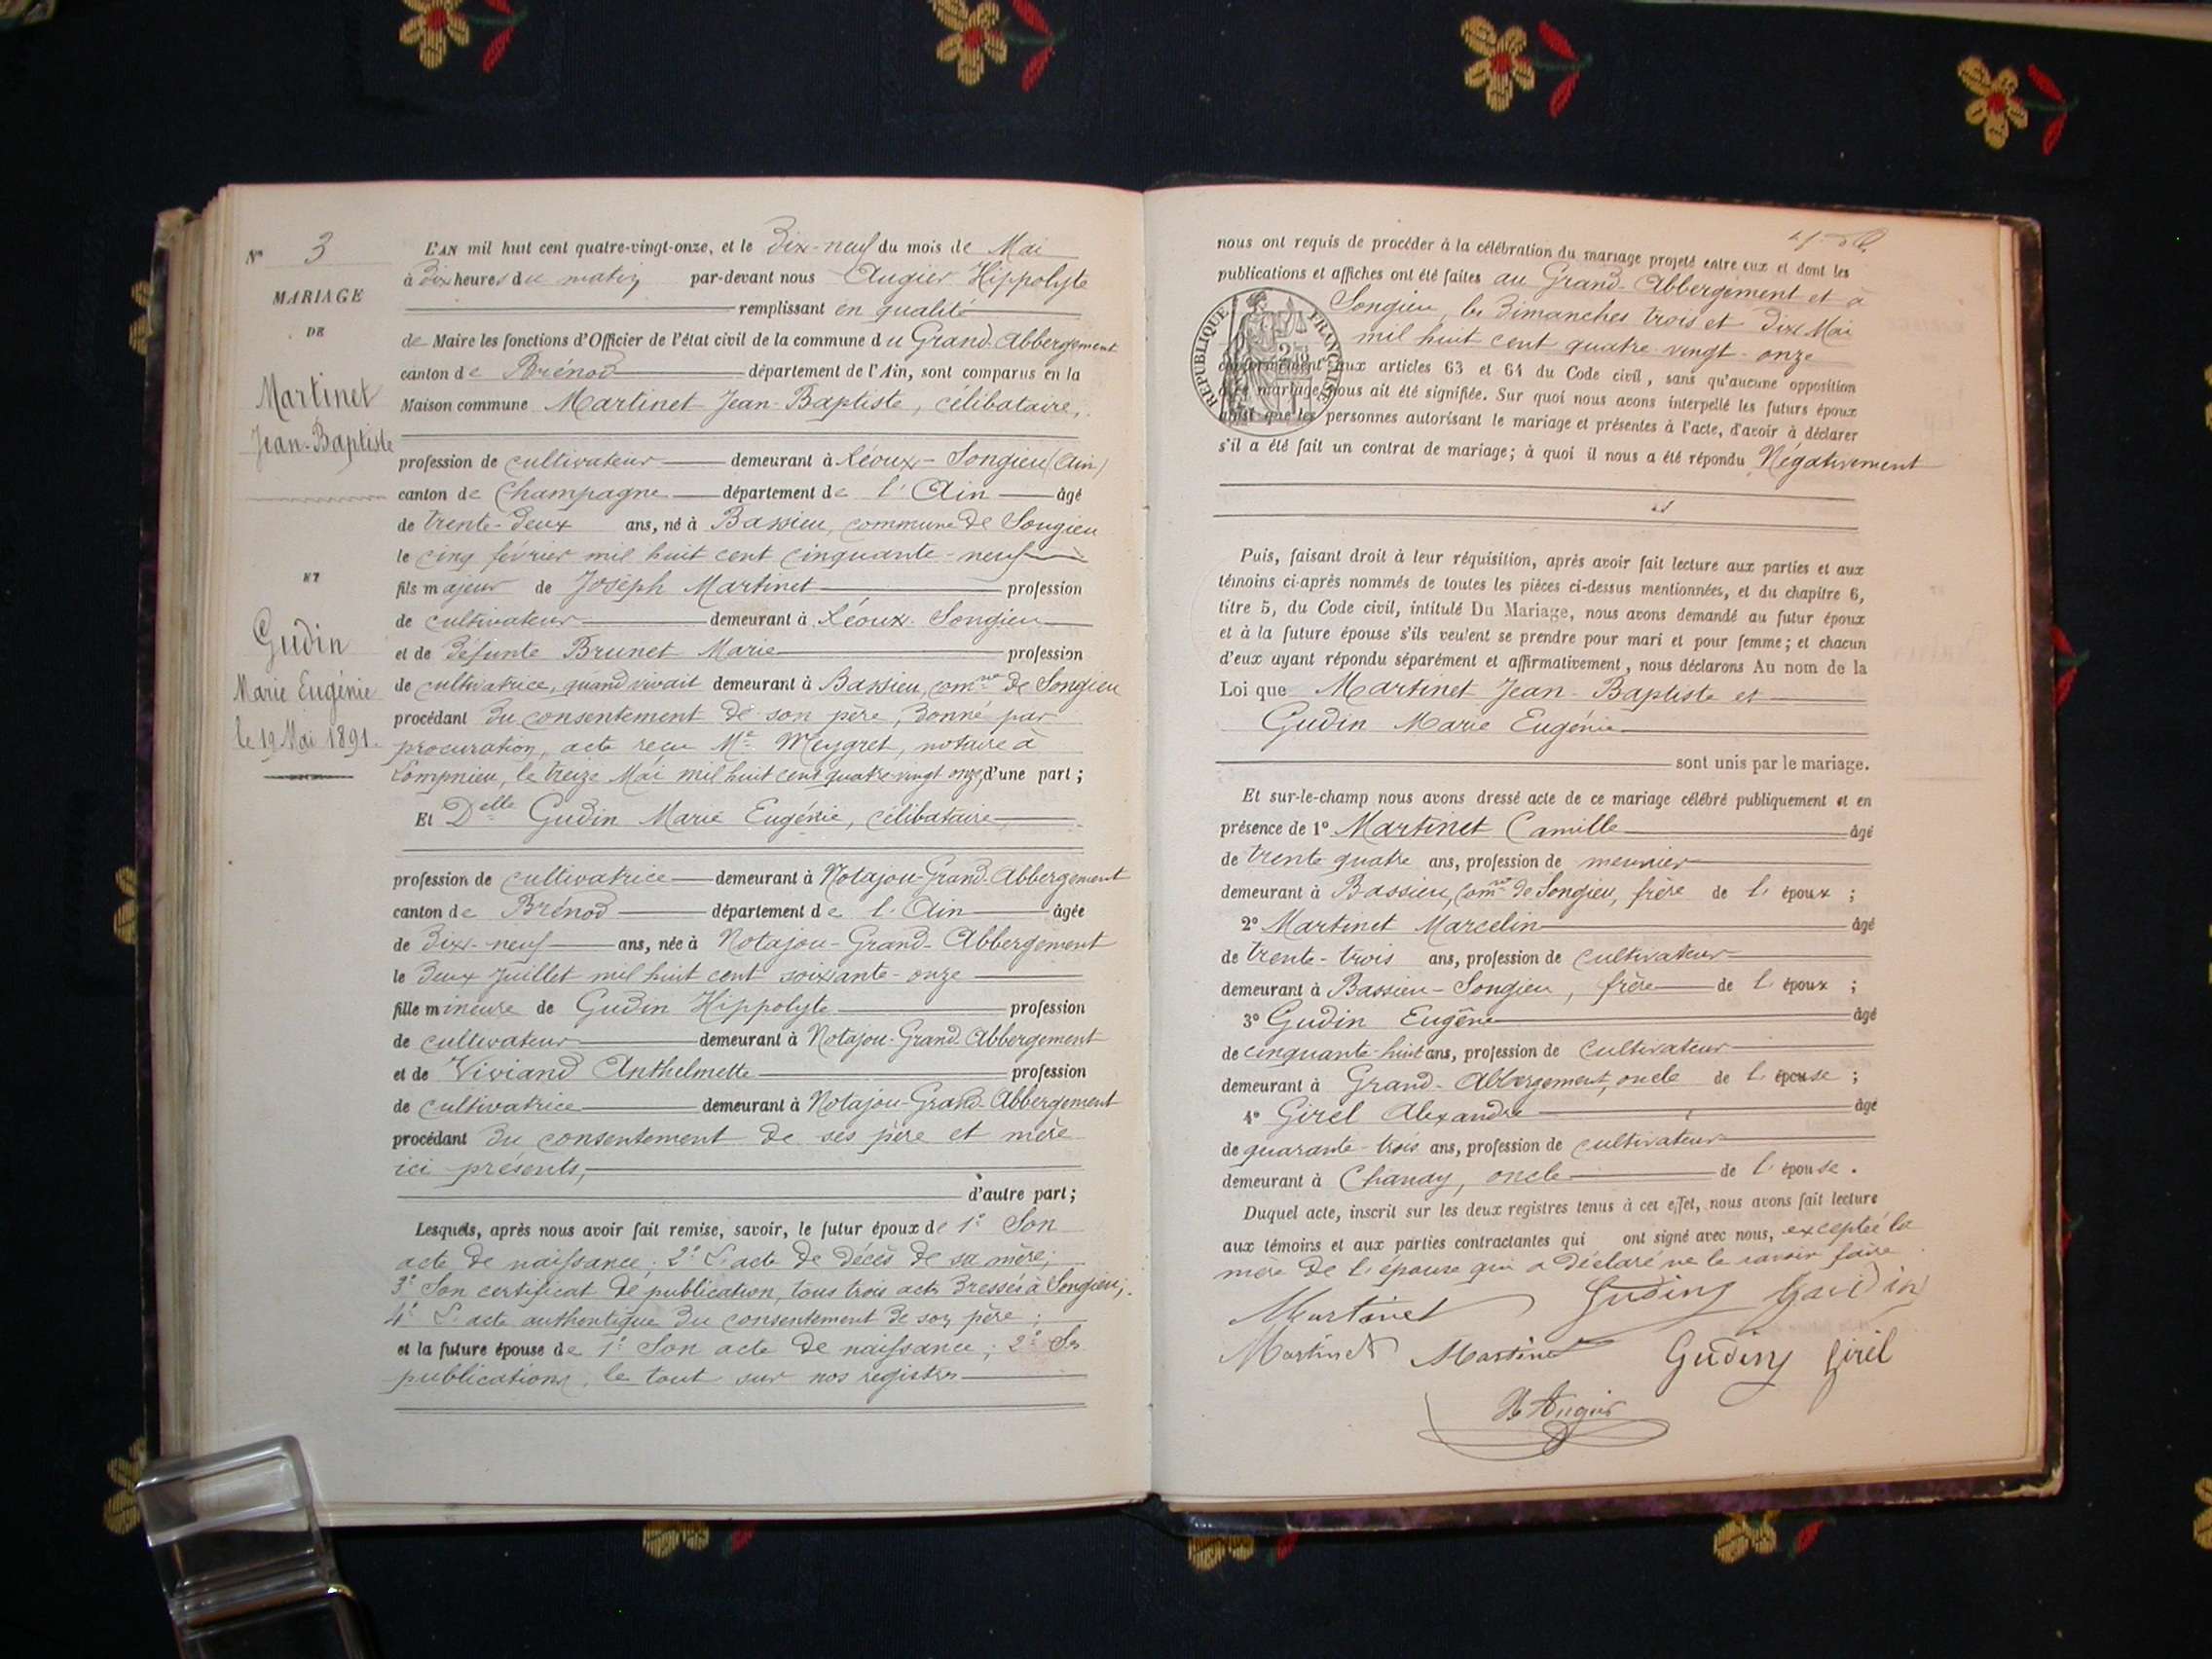 N° 3
MARIAGE
DE
Martinet
Jean-Baptiste
ET
Gudin
Marie Eugénie
le 19 Mai 1891.
L'AN mil huit cent quatre-vingt-onze, et le Dix-neuf du mois de Mai
à Dix heures du matin par-devant nous Augier Hippolyte
remplissant en qualité
de Maire les fonctions d'Officier de l'état civil de la commune du Grand-Abbergement
canton de Brénod département de l'Ain, sont comparus en la
Maison commune Martinet Jean-Baptiste, célibataire,
profession de cultivateur demeurant à Léoux-Songieu (Ain)
canton de Champagne département de l'Ain âgé
de trente-deux ans, né à Bassieu, commune de Songieu
le cinq février mil huit cent cinquante-neuf
fils majeur de Joseph Martinet profession
de cultivateur demeurant à Léoux-Songieu
et de défunte Brunet Marie profession
de cultivatrice, quand vivait demeurant à Bassieu, comne de Songieu
procédant du consentement de son père, donné par
procuration, acte reçu Me Meygret, notaire à
Lompnieu, le treize Mai mil huit cent quatre-vingt onze, d'une part ;
Et Delle Gudin Marie Eugénie, célibataire
profession de cultivatrice demeurant à Notajou-Grand-Abbergement
canton de Brénod département de l'Ain âgée
de dix-neuf ans, née à Notajou-Grand-Abbergement
le deux Juillet mil huit cent soixante-onze
fille mineure de Gudin Hippolyte profession
de cultivateur demeurant à Notajou-Grand-Abbergement
et de Viviand Anthelmette profession
de cultivatrice demeurant à Notajou-Grand-Abbergement
procédant du consentement de ses père et mère
ici présents,
d'autre part ;
Lesquels, après nous avoir fait remise, savoir, le futur époux de 1° Son
acte de naissance ; 2° L'acte de décès de sa mère ;
3° Son certificat de publication, tous trois acts dressés à Songieu ;
4° L'acte authentique du consentement de son père ;
et la future épouse de 1° Son acte de naissance ; 2° Ses
publications, le tout sur nos registres
nous ont requis de procéder à la célébration du mariage projeté entre eux et dont les
publications et affiches ont été faites au Grand-Abbergement et à
Songieu, les Dimanches trois et dix Mai
mil huit cent quatre-vingt-onze
RÉPUBLIQUE FRANÇAISE
conformément aux articles 63 et 64 du Code civil, sans qu'aucune opposition
à ce mariage nous ait été signifiée. Sur quoi nous avons interpellé les futurs époux
ainsi que les personnes autorisant le mariage et présentes à l'acte, d'avoir à déclarer
s'il a été fait un contrat de mariage ; à quoi il nous a été répondu Négativement
Puis, faisant droit à leur réquisition, après avoir fait lecture aux parties et aux
témoins ci-après nommés de toutes les pièces ci-dessus mentionnées, et du chapitre 6,
titre 5, du Code civil, intitulé Du Mariage, nous avons demandé au futur époux
et à la future épouse s'ils veulent se prendre pour mari et pour femme ; et chacun
d'eux ayant répondu séparément et affirmativement, nous déclarons Au nom de la
Loi que Martinet Jean-Baptiste et
Gudin Marie Eugénie
sont unis par le mariage.
Et sur-le-champ nous avons dressé acte de ce mariage célébré publiquement et en
présence de 1° Martinet Camille âgé
de trente-quatre ans, profession de meunier
demeurant à Bassieu, comne de Songieu, frère de l'époux ;
2° Martinet Marcelin âgé
de trente-trois ans, profession de cultivateur
demeurant à Bassieu-Songieu, frère de l'époux ;
3° Gudin Eugène âgé
de cinquante-huit ans, profession de cultivateur
demeurant à Grand-Abbergement, oncle de l'épouse ;
4° Girel Alexandre âgé
de quarante-trois ans, profession de cultivateur
demeurant à Chanay, oncle de l'épouse.
Duquel acte, inscrit sur les deux registres tenus à cet effet, nous avons fait lecture
aux témoins et aux parties contractantes qui ont signé avec nous, exceptée la
mère de l'épouse qui a déclaré ne le savoir faire
Martinet Gudin Gudin
Martinet Martinet Gudin Girel
H Augier